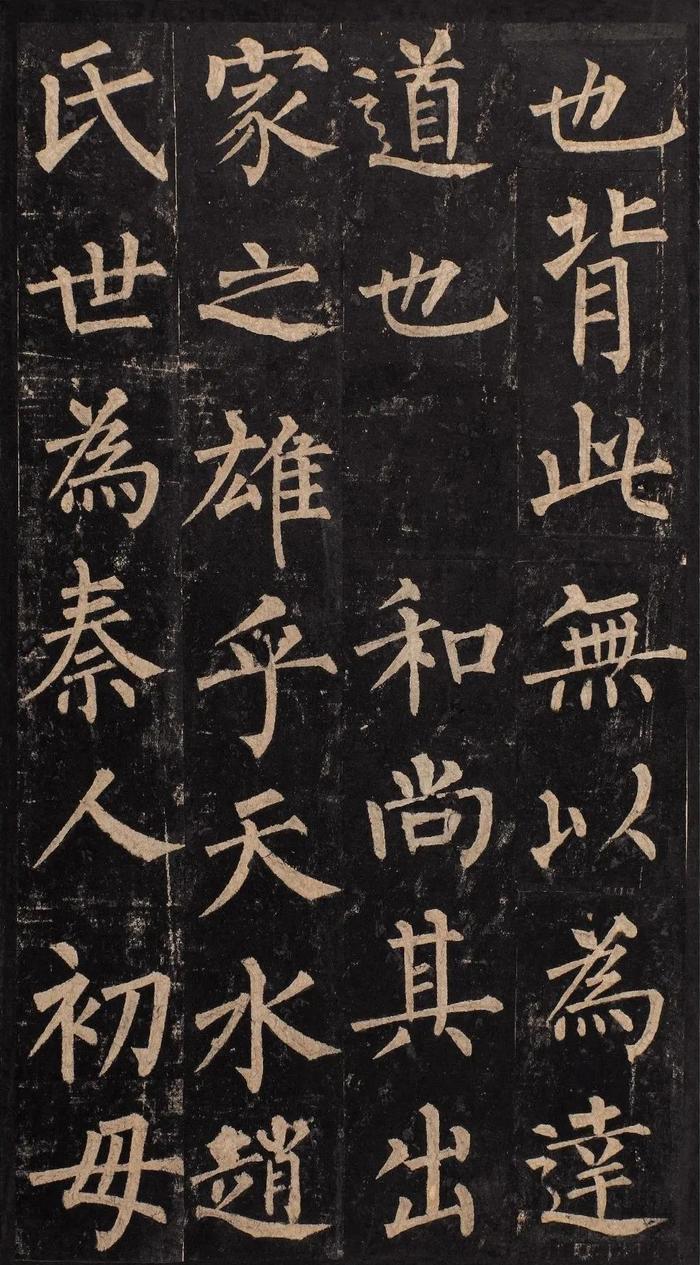 也背此無以為達
道也和尚其出
家之雄乎天水趙
氏世為秦人初母